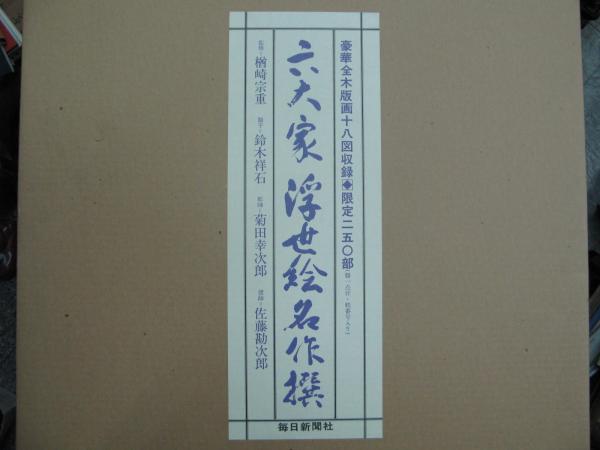 豪華全木版画十八図収録◆限定二五〇部
六大家 浮世絵名作撰
監修=楢崎宗重
題字=鈴木祥石
彫師=菊田幸次郎
摺師=佐藤勘次郎
毎日新聞社